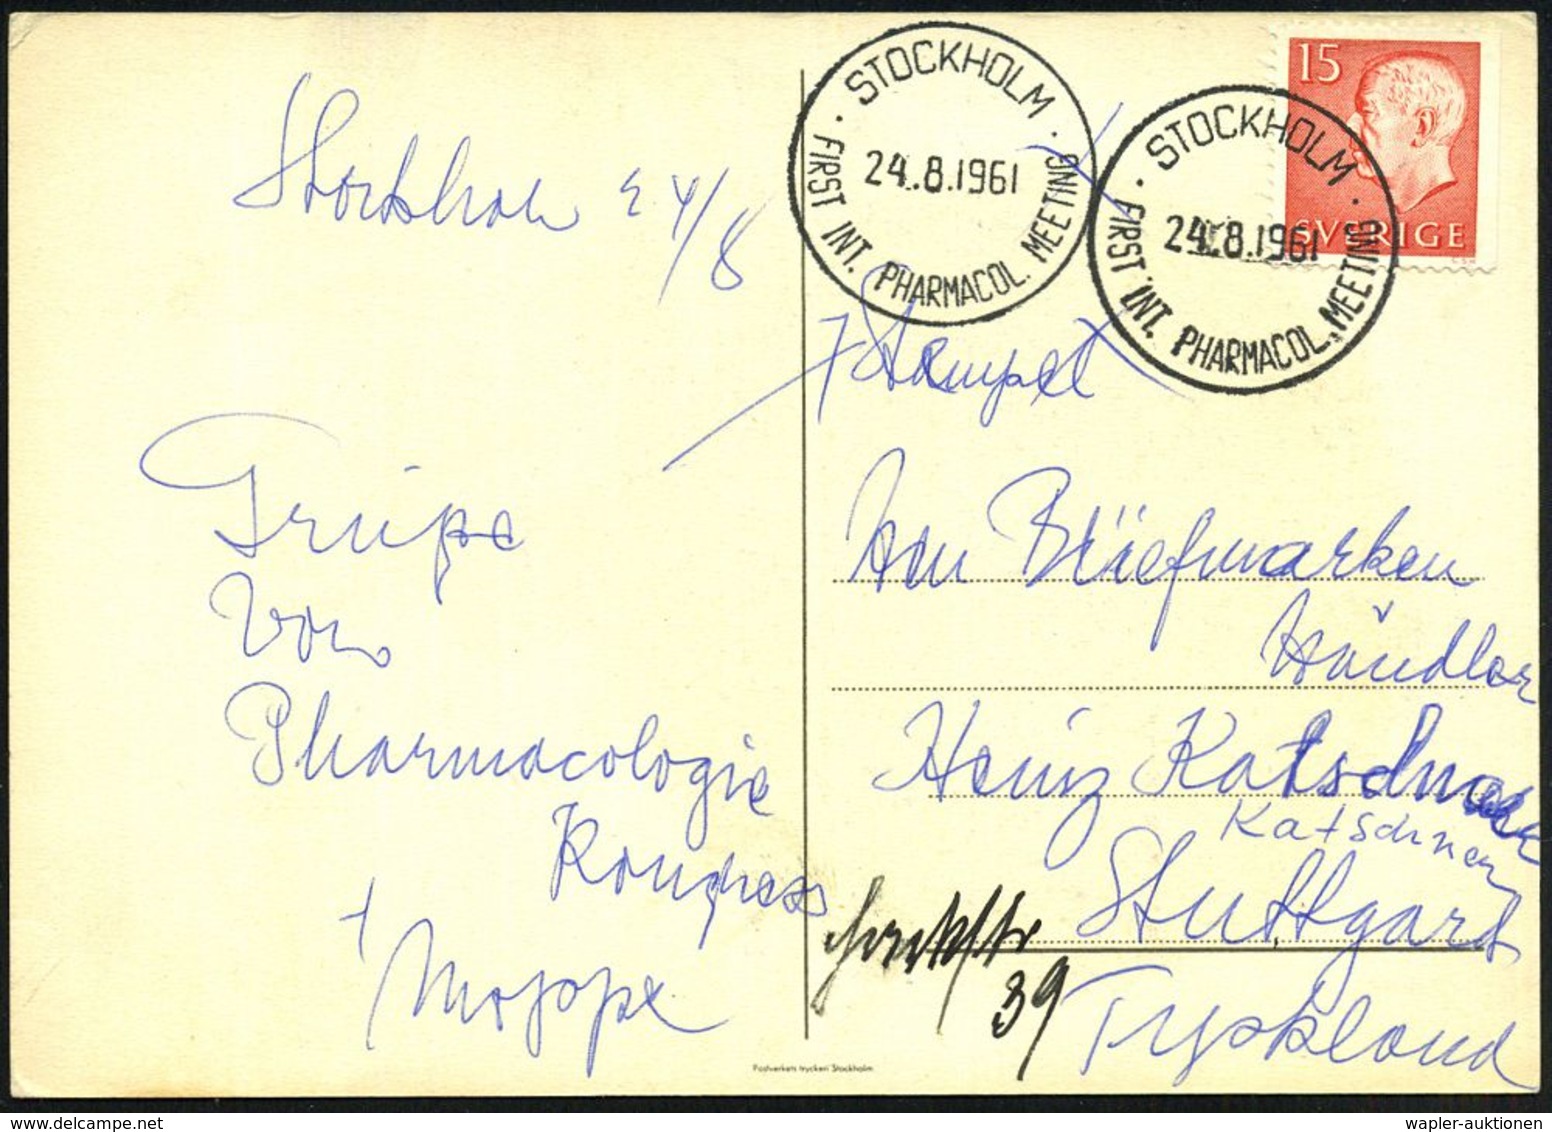 STOCKHOLM
24.8.1961
FIRST INT. PHARMACOL. MEETING
STOCKHOLM
24.8.1961
FIRST INT. PHARMACOL. MEETING
15
SVERIGE
Stockholm 24/8
Stempel
Grüpe
von
Pharmacologie
Kongress
Moppe
An Briefmarken
Händler
Heinz
Katschner
Stuttgart
39
Tyskland
Postverkets tryckeri Stockholm
wapler-auktionen